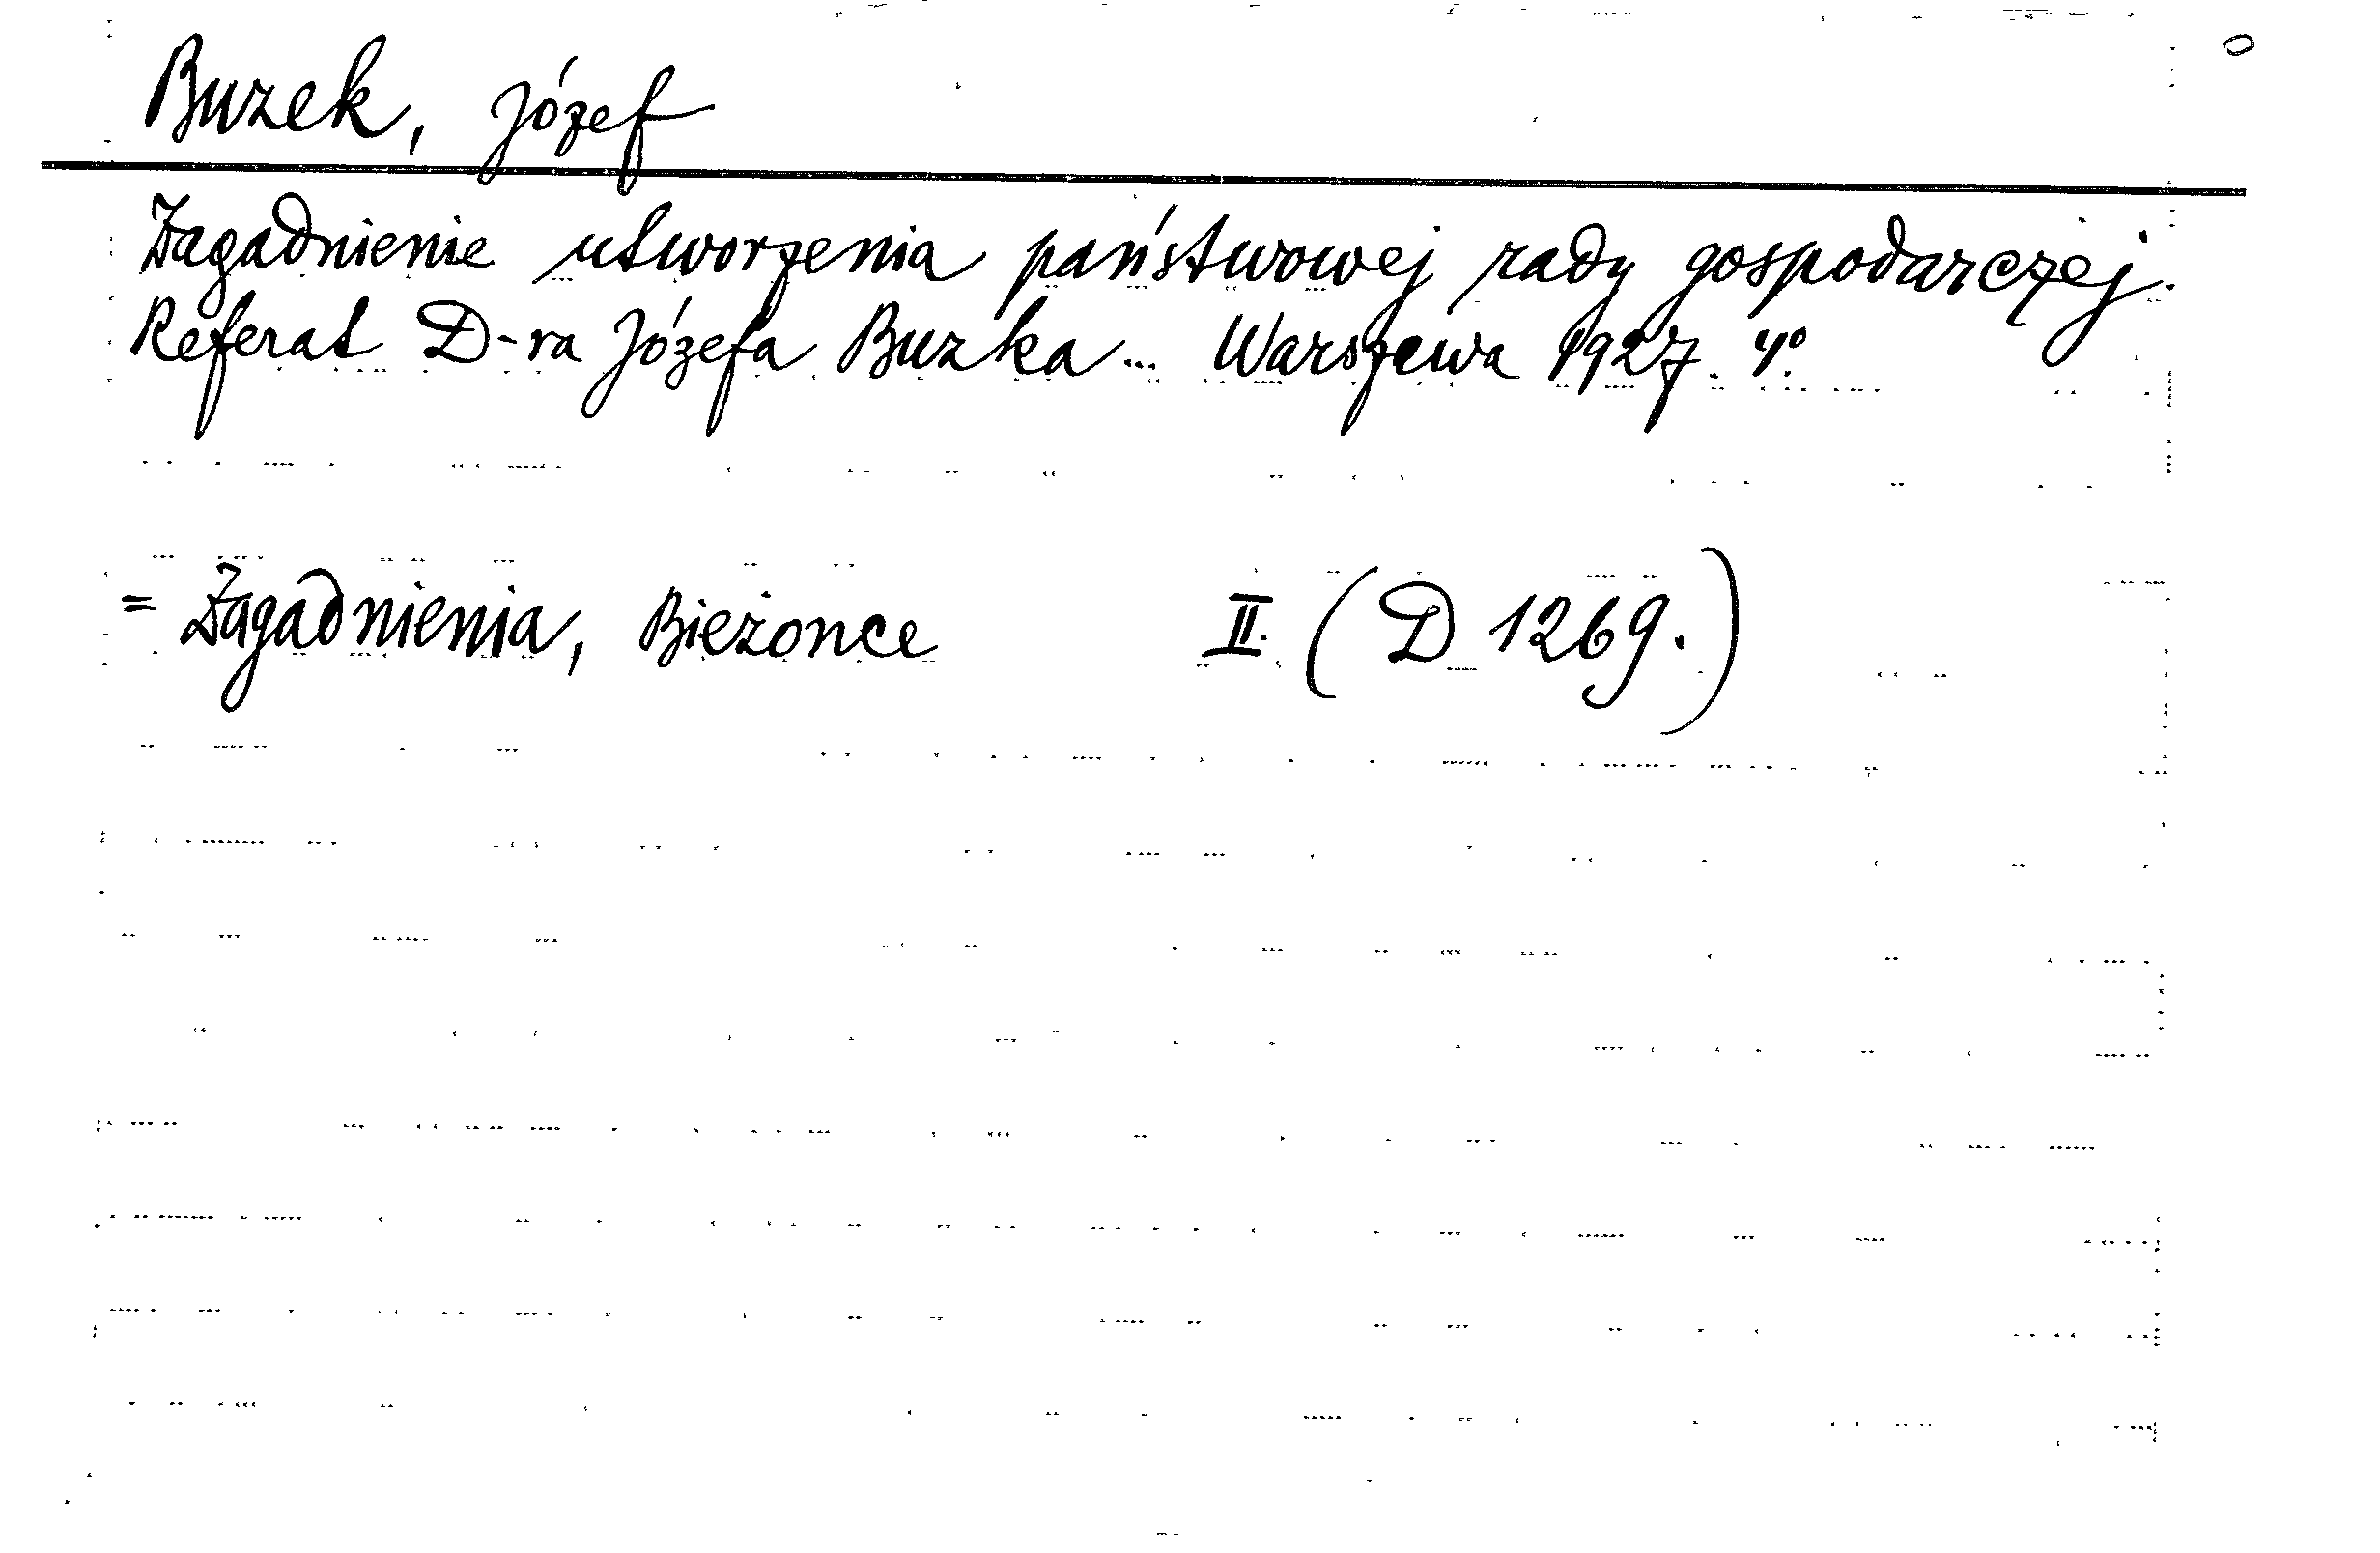 Buzek, Józef
Zagadnienie utworzenia państwowej rady gospodarczej.
Referat D-ra Józefa Buzka... Warszawa 1927. 4°
= Zagadnienia, Bieżonce II. (D 1269.)